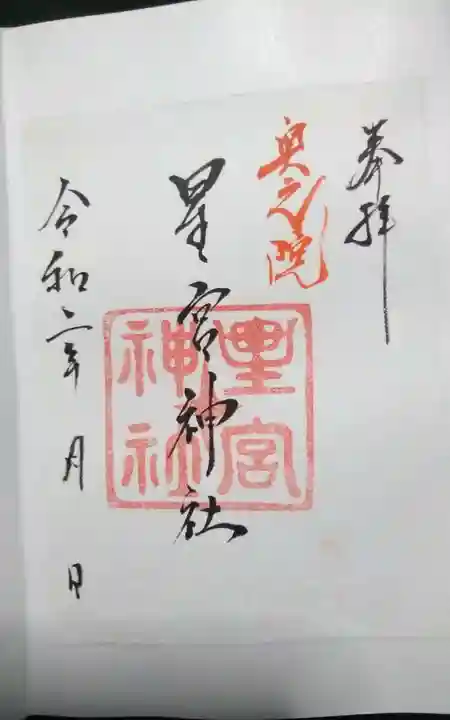 奉拝
奥之院
星宮神社
星宮神社
令和二年 月 日